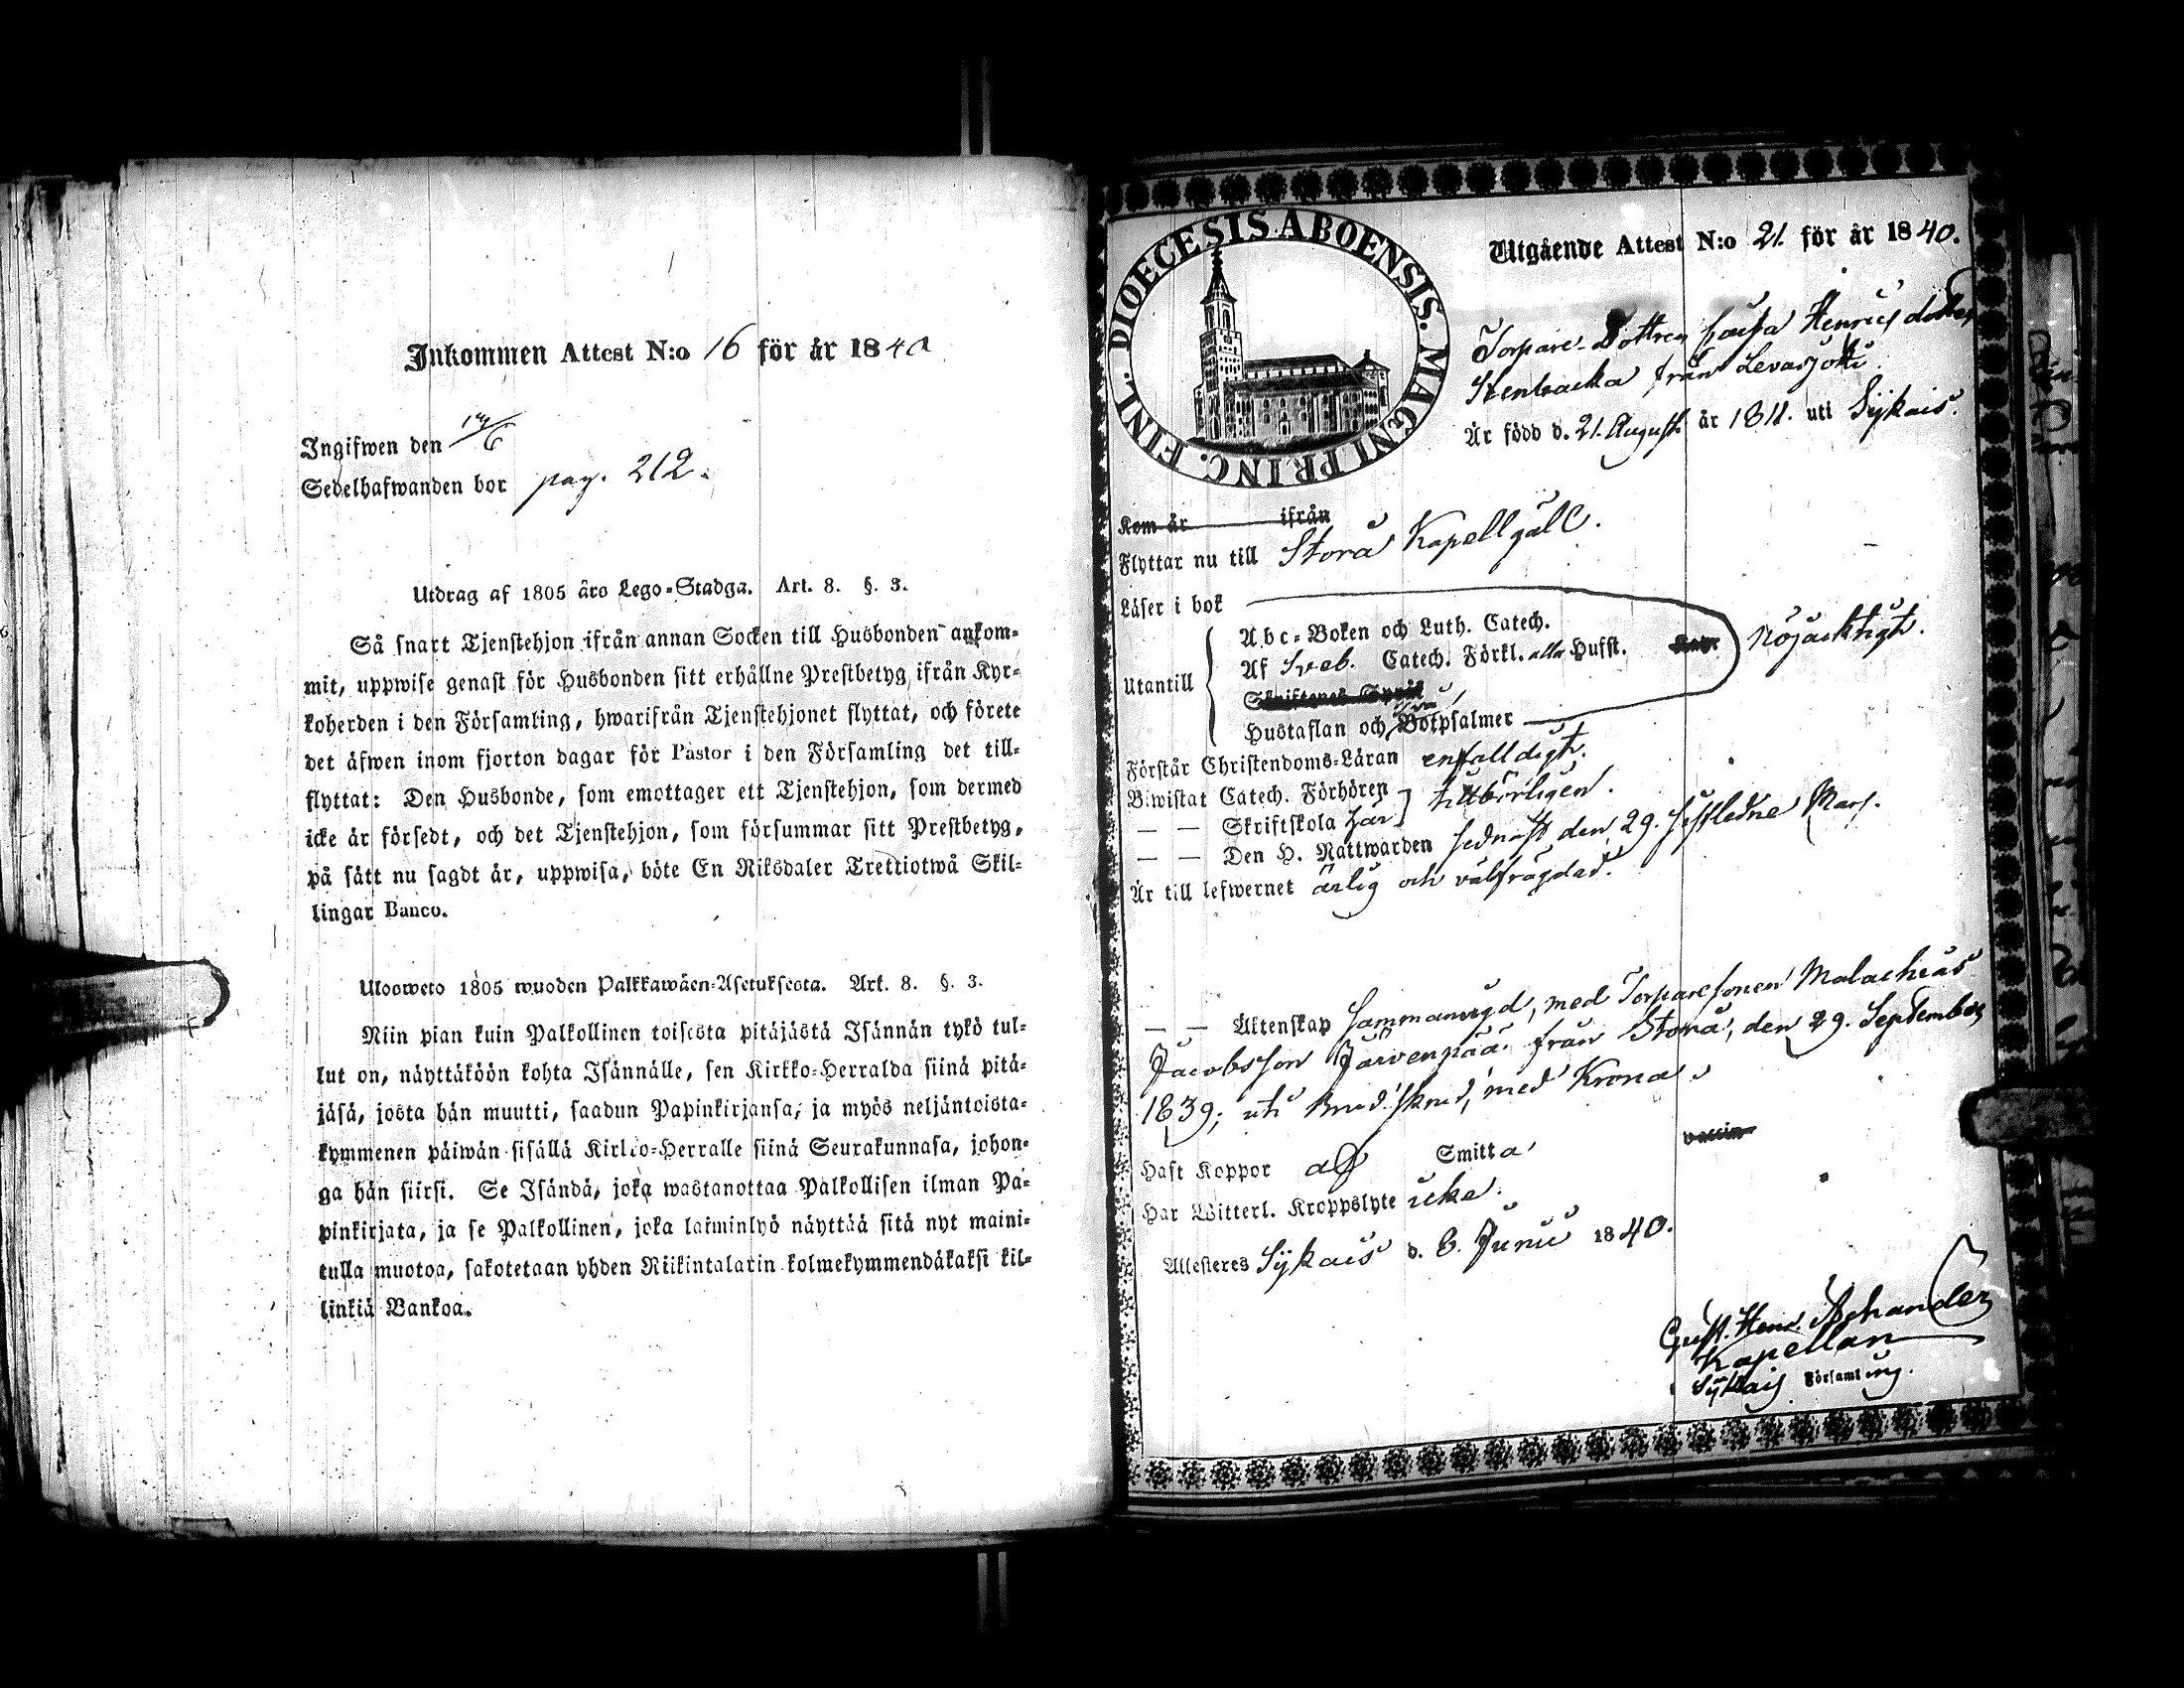 Inkommen Attest N:o 16 för år 1840
Ingifwen den 14/6
Sedelhafwanden bor pag. 212.
Utdrag af 1805 års Lego-Stadga. Art. 8. §. 3.
Så snart Tjenstehjon ifrån annan Socken till Husbonden ankom-
mit, uppwise genast för Husbonden sitt erhållne Prestbetyg ifrån Kyr-
koherden i den Församling, hwarifrån Tjenstehjonet flyttat, och förete
det äfwen inom fjorton dagar för Pastor i den Församling det till-
flyttat: Den Husbonde, som emottager ett Tjenstehjon, som dermed
icke är försedt, och det Tjenstehjon, som försummar sitt Prestbetyg,
på sätt nu sagdt är, uppwisa, böte En Riksdaler Trettiotwå Skil-
lingar Banco.
Uloosweto 1805 wuoden Palkkawäen-Asetuksesta. Art. 8. §. 3.
Niin pian kuin Palkollinen toisesta pitäjästä Isännän tykö tul-
lut on, näyttäköön kohta Isännälle, sen Kirkko-Herralda siinä pitä-
jäsä, josta hän muutti, saadun Papinkirjansa, ja myös neljäntoista-
kymmenen päiwän sisällä Kirkko-Herralle siinä Seurakunnasa, johon-
ga hän siirsi. Se Isändä, joka wastanottaa Palkollisen ilman Pa-
pinkirjata, ja se Palkollinen, joka laiminlyö näyttää sitä nyt maini-
tulla muotoa, sakotetaan yhden Riikintalarin kolmekymmendäkaksi kil-
linkiä Bankoa.
DIOECESIS ABOENSIS. MAGNI PRINC. FINL.
Utgående Attest N:o 21. för år 1840.
Torpare-Dottren Caisa Henricsdotter
Stenbacka från Levasjoki.
Är född d. 21. August. år 1811. uti Sijkais.
Kom år ifrån
Flyttar nu till Storå Kapellgäll.
Läser i bok
Abc-Boken och Luth. Catech.
Af Sveb. Catech. Förkl. alla Hufst. nöjacktigt.
Utantill
Skriftenes Språk
Hustaflan och Botpsalmer
Förstår Christendoms-Läran enfalldigt.
Biwistat Catech. Förhören
— — Skriftskola här tillbörligen.
— — Den H. Nattwarden sednast den 29. sistledne Mars.
Är till lefwernet ärlig och välfrägdad.
— — Äktenskap sammanvigd, med Torparesonen Malachias
Jacobsson Järvenpää från Storå, den 29. September
1839; uti Brud-skrud, med Krona.
Haft Koppor af Smitta vaccin
Har Witterl. Kroppslyte icke.
Attesteras Sijkais d. 6. Junii 1840.
Gust. Henr. Achander
Kapellan
Sijkais Församling.